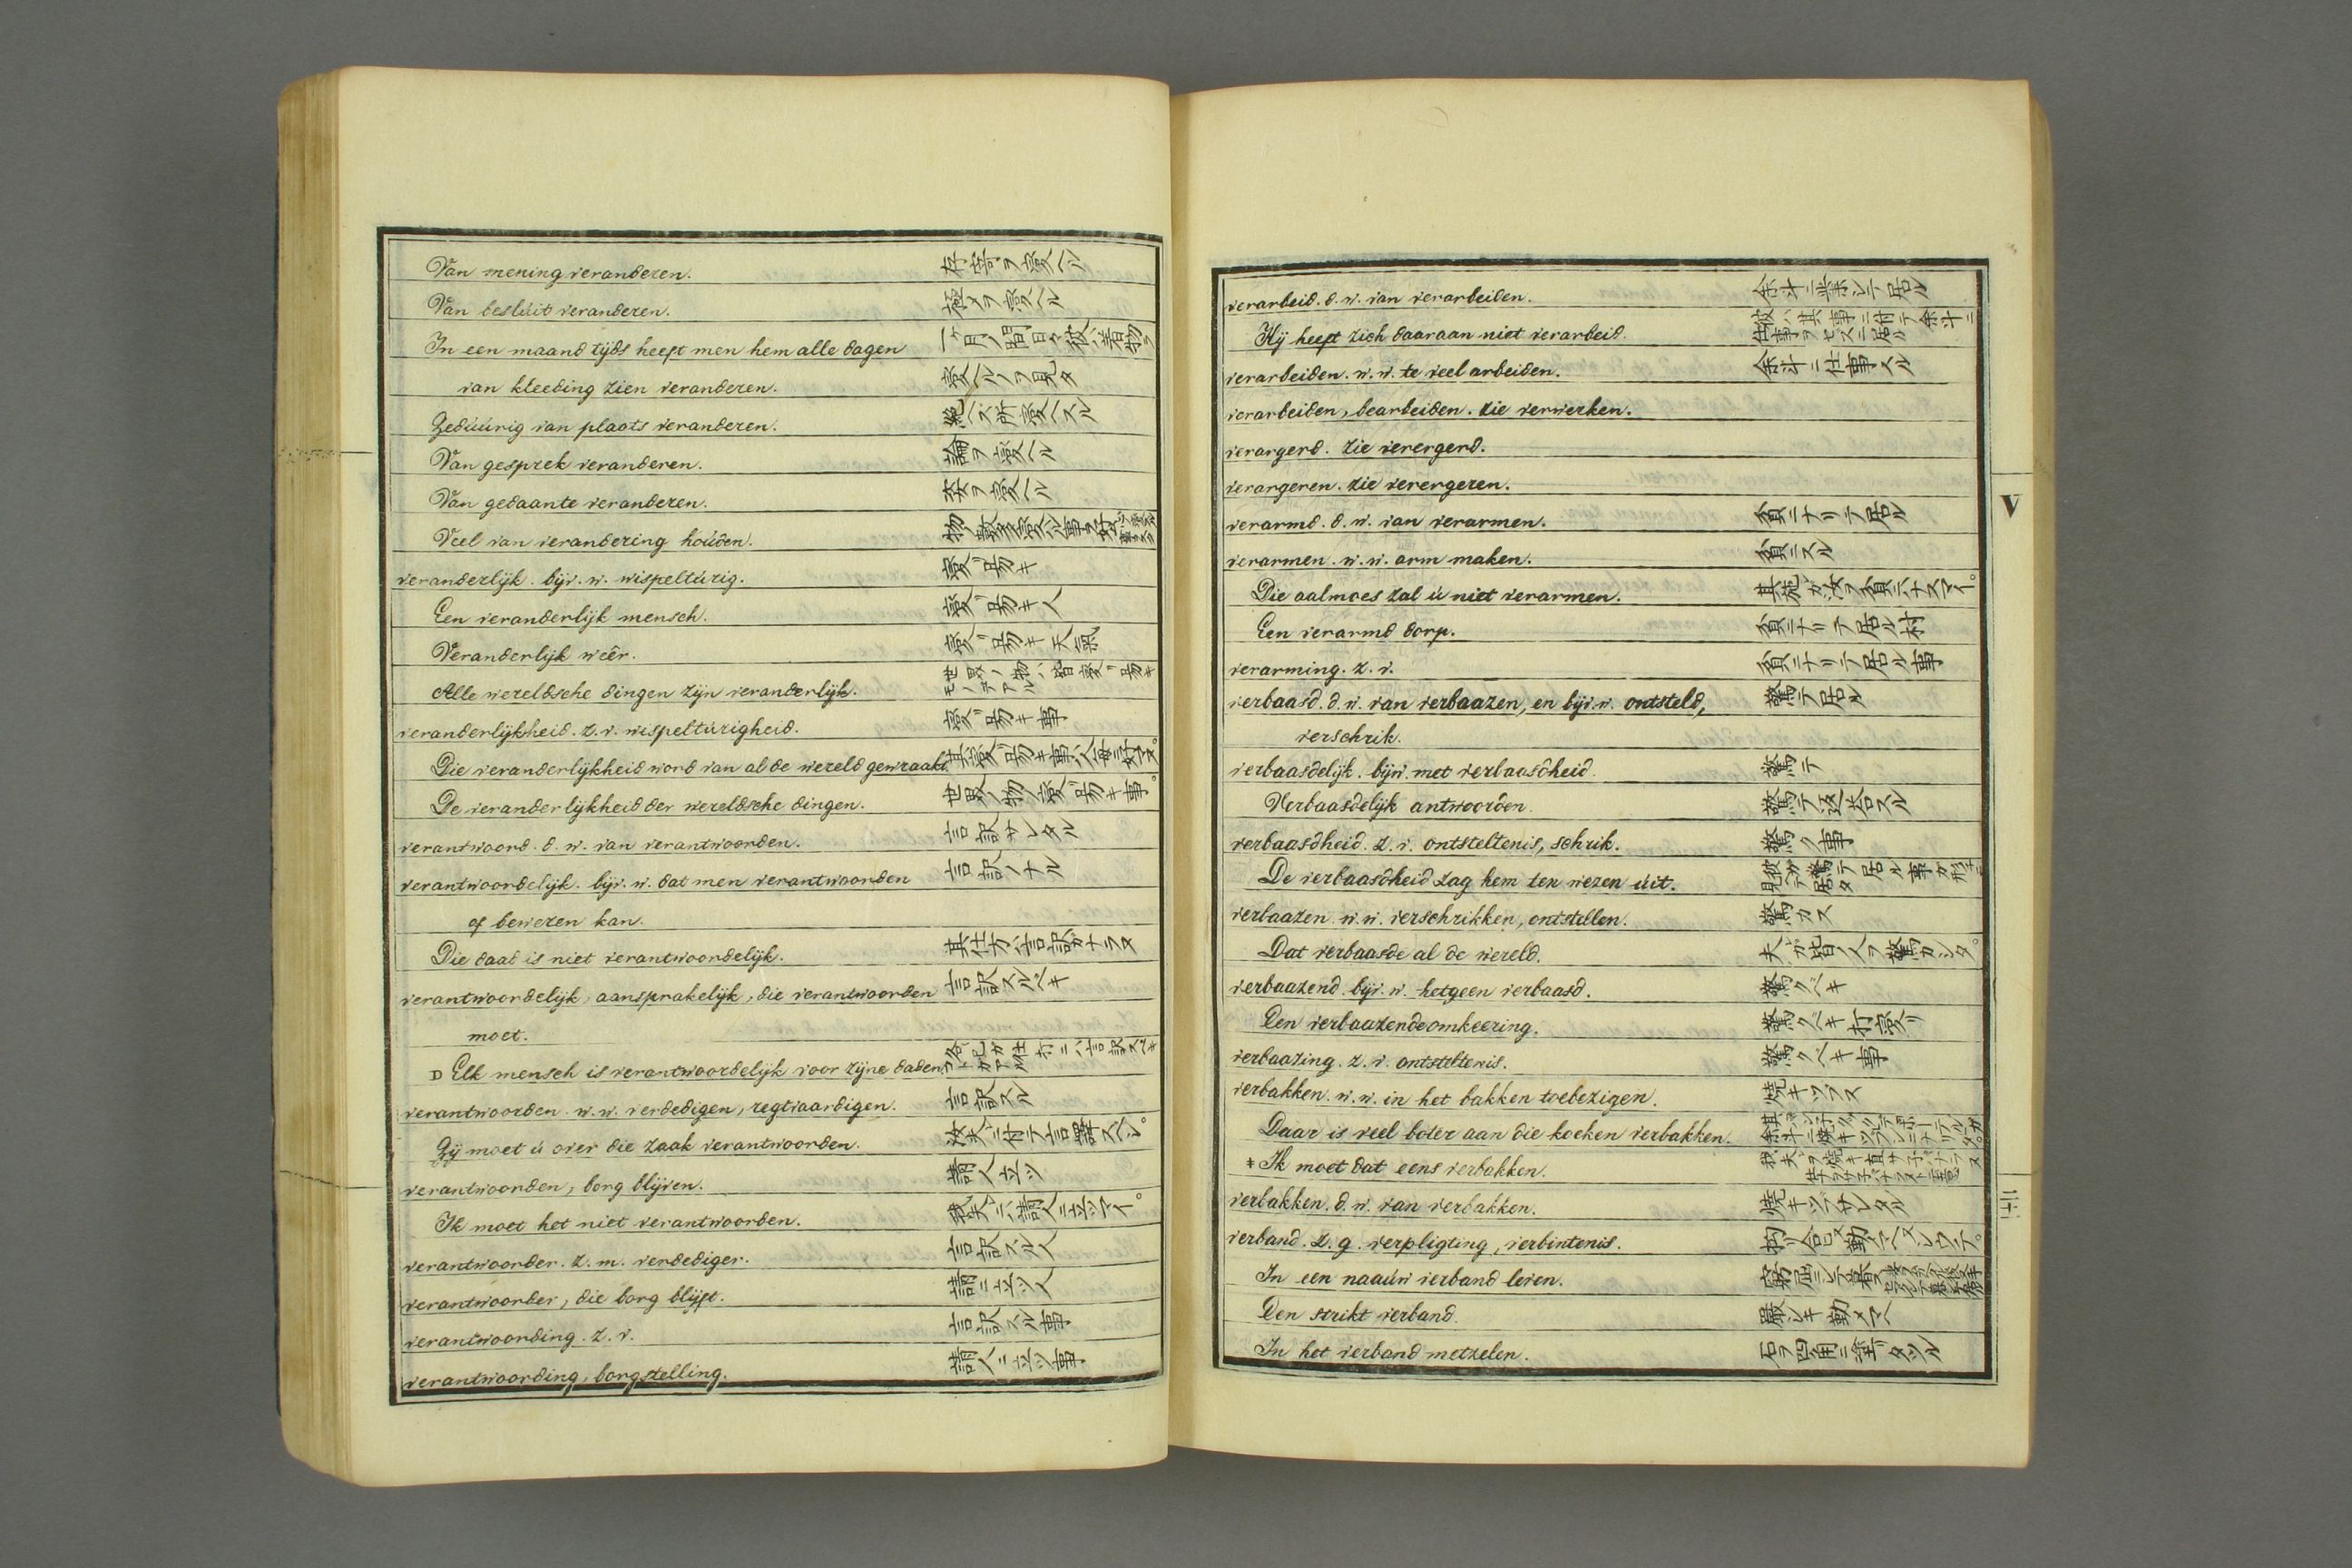 Van mening veranderen. 存寄ヲ変ヘル
Van beslúit veranderen. 極メヲ変ヘル
In een maand tijds heeft men hem alle dagen 一ヶ月ノ間日々彼ハ着物ヲ
van kleeding zien veranderen. 変ヘルノヲ見タ
Gedúúrig van plaats veranderen. 絶ヘズ所変ヘスル
Van gesprek veranderen. 論ヲ変ヘル
Van gedaante veranderen. 姿ヲ変ヘル
Veel van verandering hoúden.
veranderlijk. bijv. w. wispeltúrig. 変リ易キ
Een veranderlijk mensch. 変リ易キ人
Veranderlijk weêr. 変リ易キ天氣
Alle wereldsche dingen zijn veranderlijk. 世界ノ物ハ皆変リ易キ
モノデアル
veranderlijkheid. z. v. wispeltúrigheid. 変リ易キ事
Die veranderlijkheid word van al de wereld gewraakt. 其変リ易キ事ハ人毎ニ好マヌ。
De veranderlijkheid der wereldsche dingen. 世界ノ物ノ変リ易キ事。
verantwoord. d. w. van verantwoorden. 言訳サレタル
verantwoordelijk. bijv. w. dat men verantwoorden 言訳ノナル
of beweren kan.
Die daad is niet verantwoordelijk. 其仕方ハ言訳ガナラヌ
verantwoordelijk, aansprakelijk, die verantwoorden 言訳スルベキ
moet.
D Elk mensch is verantwoordelijk voor zijne daden.
verantwoorden. w. w. verdedigen, regtvaardigen. 言訳スル
Gij moet ú over die zaak verantwoorden. 汝夫ニ付テ言譯スベシ。
verantwoorden, borg blijven. 請人立ツ
Ik moet het niet verantwoorden. 我夫ニハ請人ニ立ツマイ。
verantwoorder. z. m. verdediger. 言訳スル人
verantwoorder, die borg blijft. 請ニ立ツ人
verantwoording. z. v. 言訳スル事
verantwoording, borgstelling. 請人ニ立ツ事
verarbeid. d. w. van verarbeiden. 余斗ニ業シテ居ル
Hij heeft zich daaraan niet verarbeid. 彼ハ其事ニ付テ余斗ニ
仕事ヲセズニ居ル
verarbeiden. w. w. te veel arbeiden. 余斗ニ仕事スル
verarbeiden, bearbeiden. zie verwerken.
verargerd. zie verergerd.
verargeren. zie verergeren.
verarmd. d. w. van verarmen. 貧ニナリテ居ル
verarmen. w. w. arm maken. 貧ニスル
Die aalmoes zal ú niet verarmen. 其施ガ汝ヲ貧ニナスマイ。
Een verarmd dorp. 貧ニナリテ居ル村
verarming. z. v. 貧ニナリテ居ル事
verbaasd. d. w. van verbaazen, en bijv. w. ontsteld, 驚テ居ル
verschrik.
verbaasdelijk. bijw. met verbaasdheid. 驚テ
Verbaasdelijk antwoorden. 驚テ返答スル
verbaasdheid. z. v. ontsteltenis, schrik. 驚ク事
De verbaasdheid zag hem ten wezen úit. 彼ガ驚テ居ル事ガ形ニ
見ヘテ居タ
verbaazen. w. w. verschrikken, ontstellen. 驚カス
Dat verbaasde al de wereld. 夫ガ皆ノ人ヲ驚カシタ。
verbaazend. bijv. w. hetgeen verbaasd. 驚クベキ
Een verbaazende omkeering. 驚クベキ打変リ
verbaazing. z. v. ontsteltenis. 驚クベキ事
verbakken. w. w. in het bakken toebezigen. 焼キツブス
Daar is veel boter aan die koeken verbakken.
* Ik moet dat eens verbakken.
verbakken. d. w. van verbakken. 焼キツブサレタル
verband. z. g. verpligting, verbintenis.
In een naaúw verband leven.
Een strikt verband. 嚴シキ勤メマヘ
In het verband metzelen. 石ヲ四角ニ塗リタツル
V